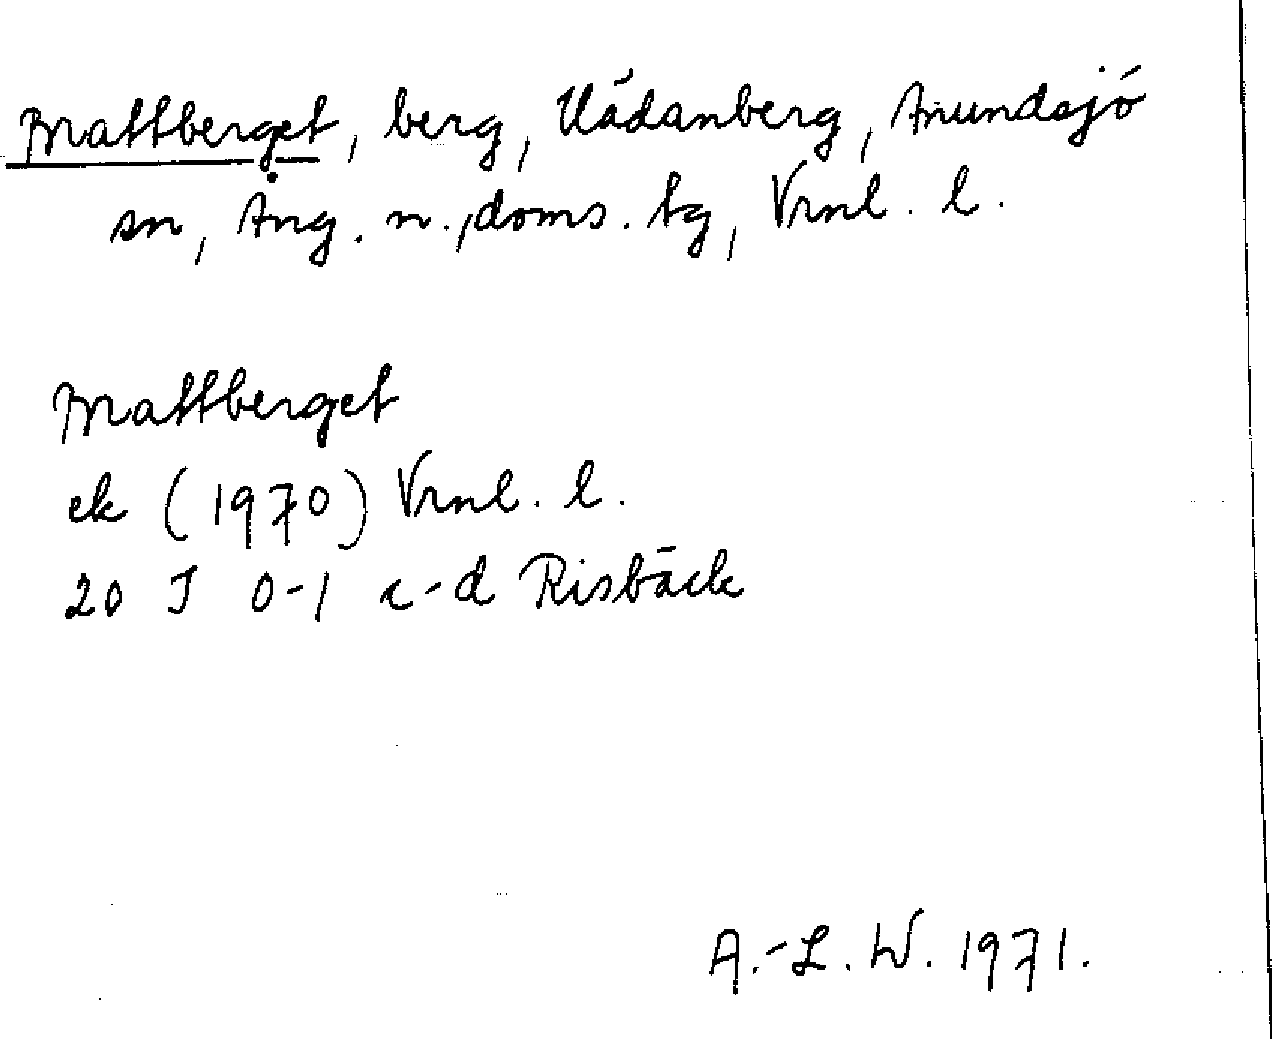 Brattberget, berg, Anundsjö
sn, Ång. n., doms. tg, Vrnl. l.
Brattberget
ek (1970) Vrnl. l.
20 J 0-1 c-d Risbäck
A.-L. W. 1971.